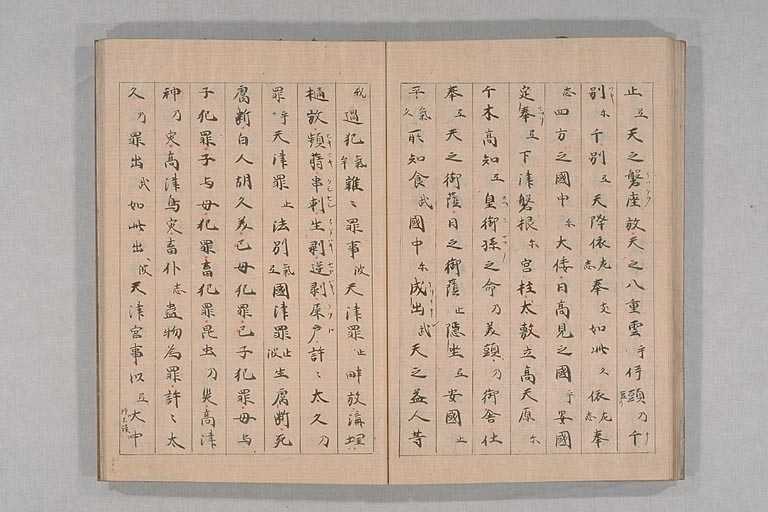 止互天之磐座放天之八重雲乎伊頭乃千
別尓千別互天降依左志奉支如此久依左志奉
志四方之國中尓大倭日高見之國乎安國
定奉互下津磐根尓宮柱太敷立高天原尓
千木高知互皇御孫之命乃美頭乃御舎仕
奉互天之御蔭日之御蔭止隠坐互安國止
平氣久所知食武國中尓成出武天之益人等
我過犯氣牟雜〻罪事波天津罪止畔放溝埋
樋放頻蒔串刺生剥逆剥屎戸許〻太久乃
罪乎天津罪止法別氣互國津罪止波生膚断死
膚断白人胡久美己母犯罪己子犯罪母与
子犯罪子与母犯罪畜犯罪昆虫乃災高津
神乃災高津鳥災畜仆志蠱物為罪許〻太
久乃罪出武如此出波天津宮事以互大中